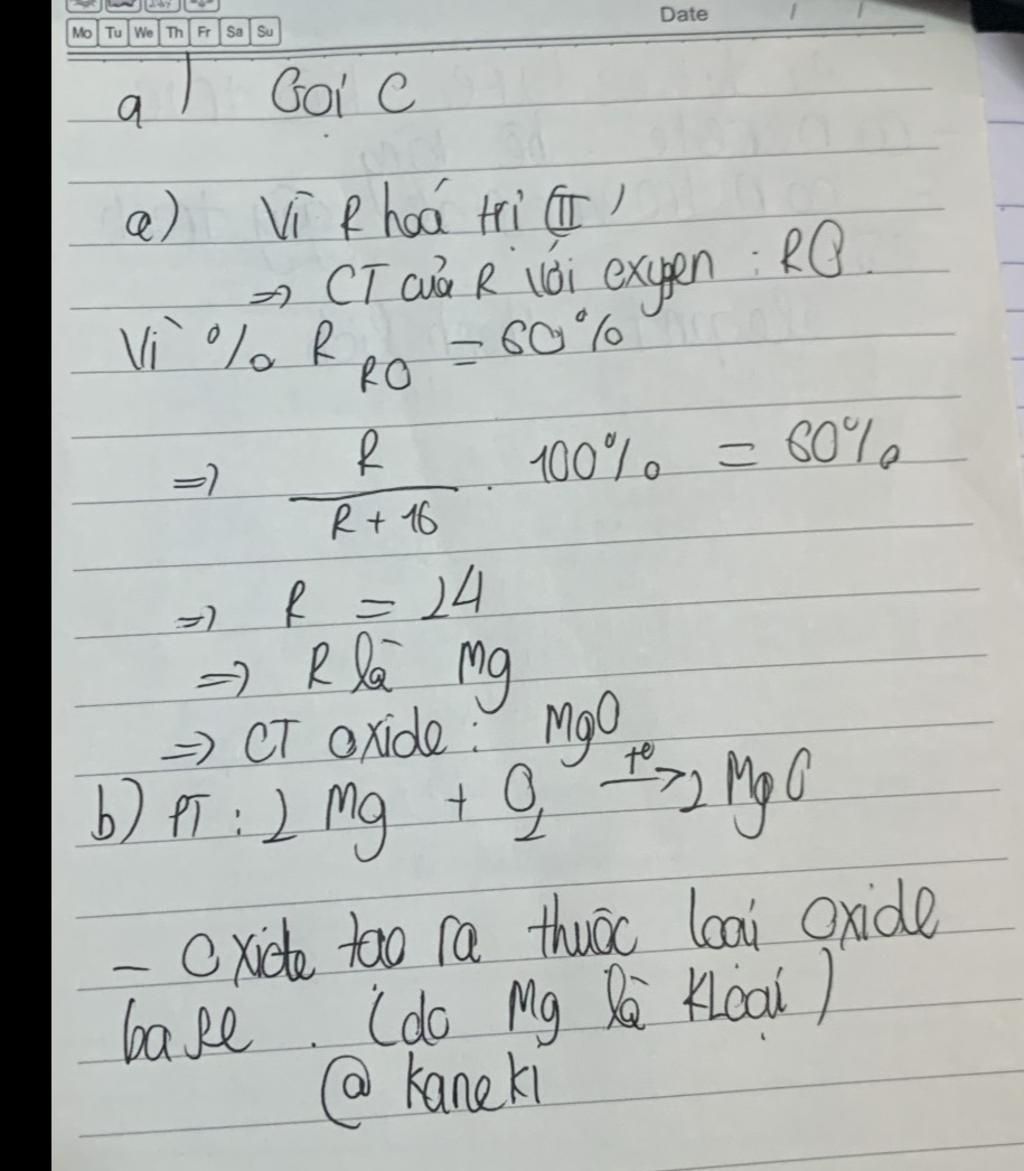 Date / /
Mo Tu We Th Fr Sa Su
a) Gọi C
a) Vì R hoá trị (II)
=> CT của R với oxygen : RO.
Vì % R RO = 60%
=> R / R + 16 . 100% = 60%
=> R = 24
=> R là Mg
=> CT oxide : MgO
b) PT : 2 Mg + O2 t° → 2 MgO
- Oxide tạo ra thuộc loại oxide
base . (do Mg là Kloại)
@ kaneki